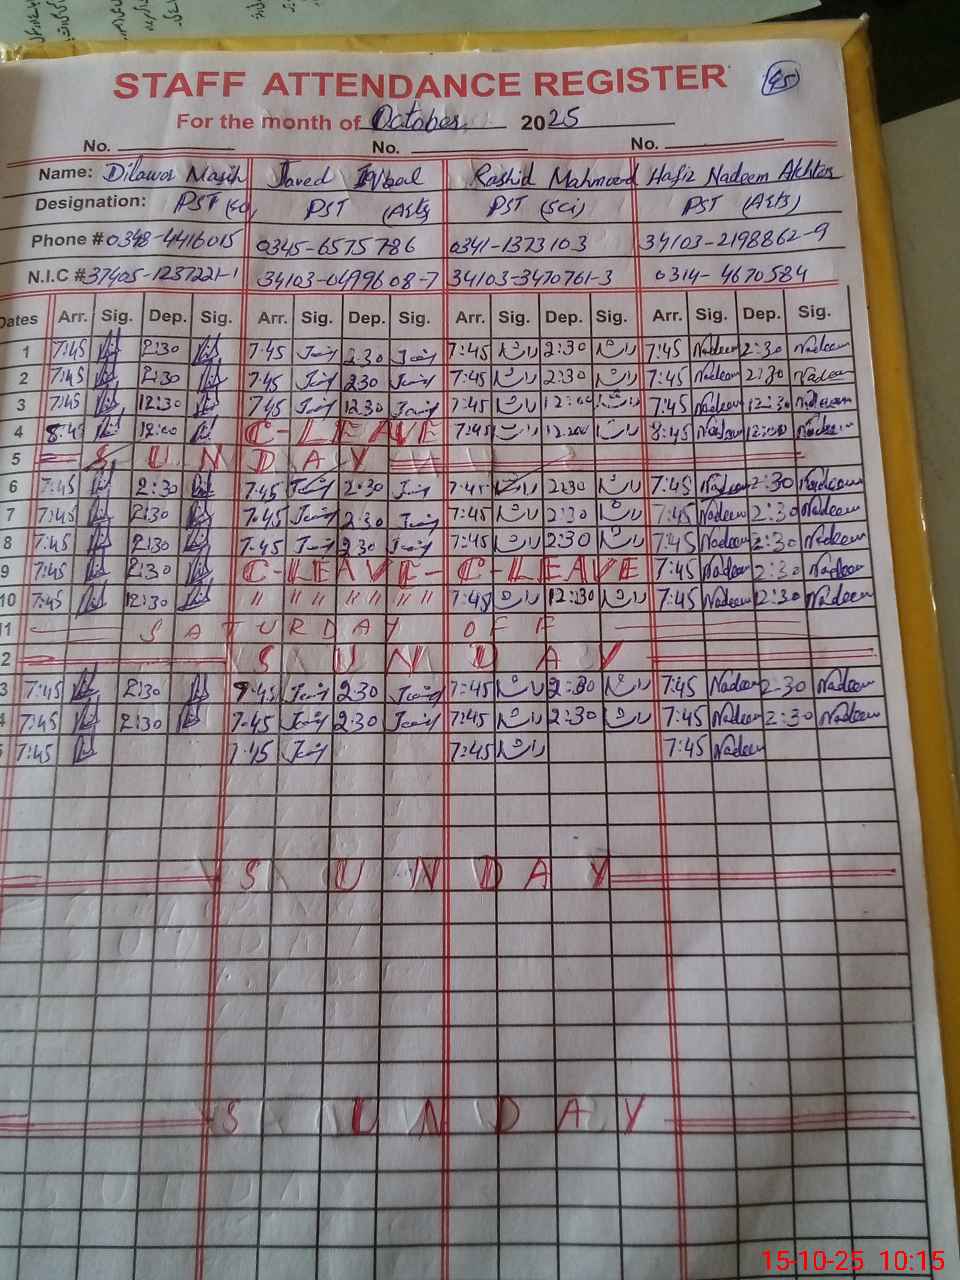 STAFF ATTENDANCE REGISTER
45
For the month of October 2025
No. No. No.
Name: Dilawar Masih Javed Iqbal Rashid Mahmood Hafiz Nadeem Akhter
Designation: PST PST (Arts) PST (Sci) PST (Arts)
Phone # 0348-4416015 0345-6575786 0341-1373103 34103-2198862-9
N.I.C # 37405-1237221-1 34103-0499608-7 34103-3470761-3 0314-4670584
Dates Arr. Sig. Dep. Sig. Arr. Sig. Dep. Sig. Arr. Sig. Dep. Sig. Arr. Sig. Dep. Sig.
1 7:45 2:30 7:45 2:30 7:45 2:30 7:45 Nadeem 2:30 Nadeem
2 7:45 2:30 7:45 2:30 7:45 2:30 7:45 Nadeem 2:30 Nadeem
3 7:45 12:30 7:45 12:30 7:45 7:45 Nadeem 12:30 Nadeem
4 8:45 12:00 C-LEAVE 7:45 12:00 8:45 Nadeem 12:00 Nadeem
5 SUNDAY
6 7:45 2:30 7:45 2:30 7:45 2:30 7:45 Nadeem 2:30 Nadeem
7 7:45 2:30 7:45 2:30 7:45 2:30 7:45 Nadeem 2:30 Nadeem
8 7:45 2:30 7:45 2:30 7:45 2:30 7:45 Nadeem 2:30 Nadeem
9 7:45 2:30 C-LEAVE - C-LEAVE 7:45 Nadeem 2:30 Nadeem
10 7:45 12:30 " " " " " " " 7:45 12:30 7:45 Nadeem 12:30 Nadeem
11 SATURDAY OFF
2 SUNDAY
3 7:45 2:30 7:45 2:30 7:45 2:30 7:45 Nadeem 2:30 Nadeem
4 7:45 2:30 7:45 2:30 7:45 2:30 7:45 Nadeem 2:30 Nadeem
7:45 7:45 7:45 7:45 Nadeem
SUNDAY
SUNDAY
15-10-25 10:15